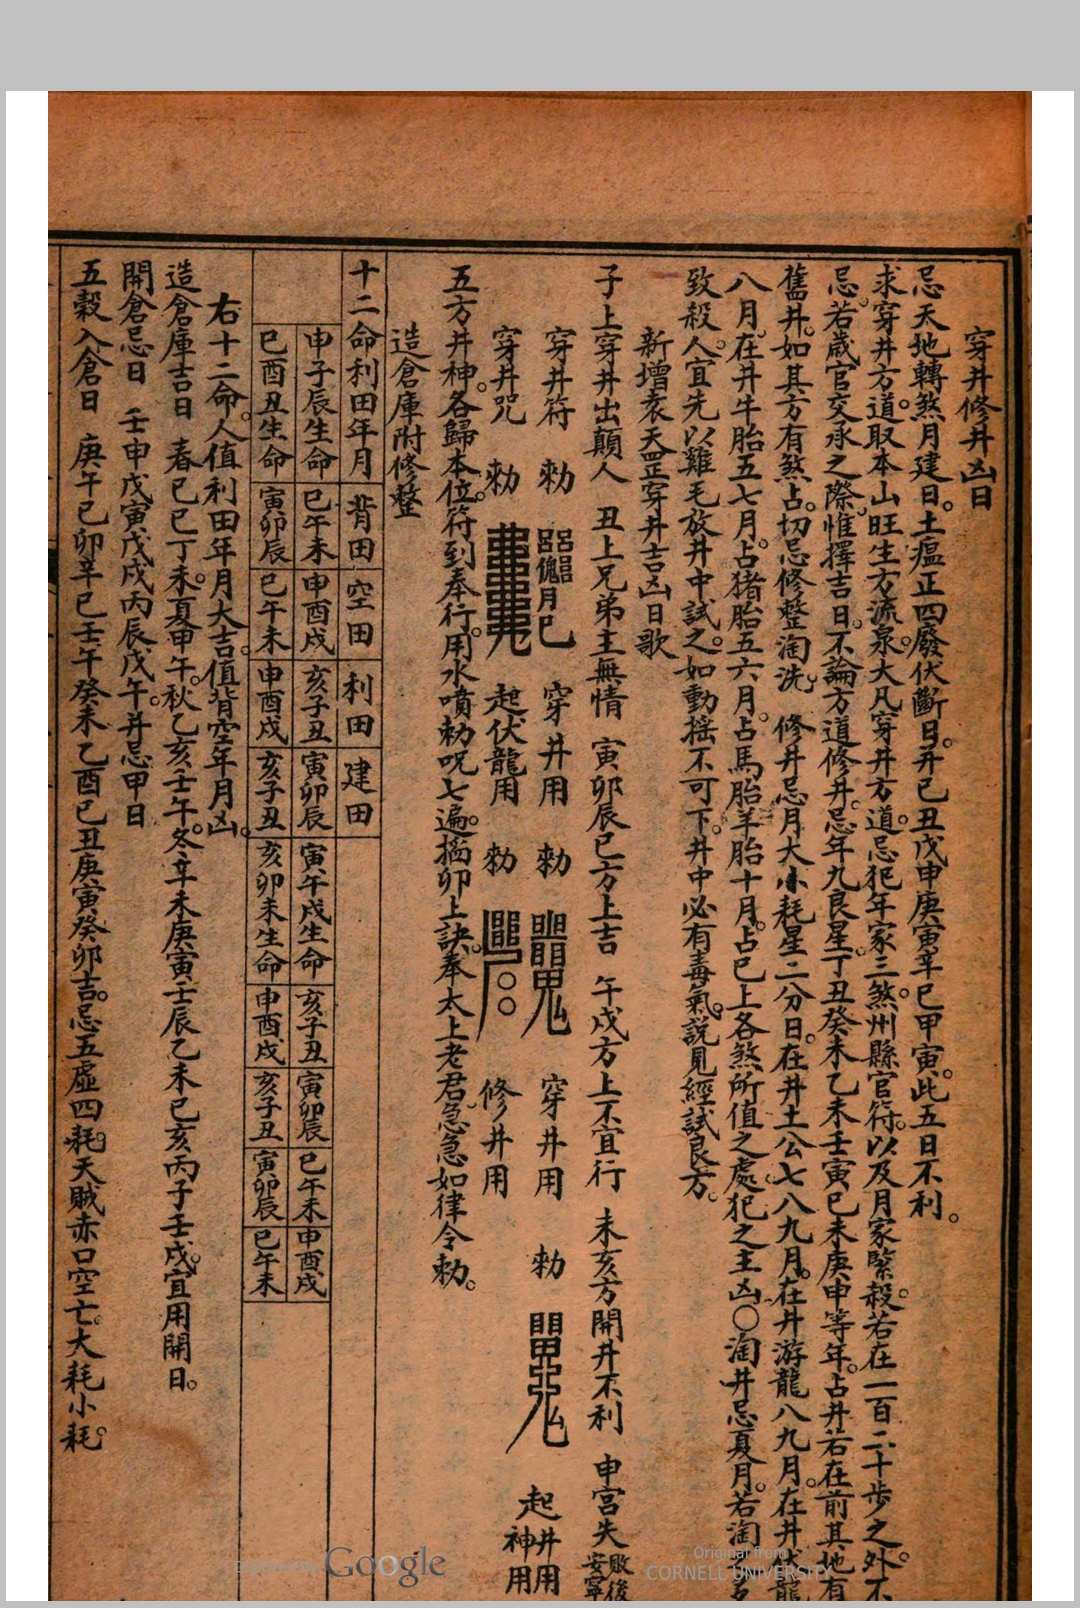 穿井修井凶日
忌天地轉煞月建日。土瘟正四廢伏斷日。并已丑戊申庚寅辛巳甲寅。此五日不利。
求穿井方道。取本山旺生方流泉。大凡穿井方道。忌犯年家三煞。州縣官符。以及月家緊殺。若在一百二十步之外。不
忌。若歲官交承之際。惟擇吉日。不論方道修井。忌年九良星。丁丑癸未乙未壬寅巳未庚申等年。占井若在前其地有
舊井。如其方有煞占。切忌修整淘洗 修井忌月大小耗星二分日。在井土公七八九月。在井游龍八九月。在井伏龍
八月。在井牛胎五七月。占猪胎五六月。占馬胎羊胎十月。占巳上各煞所值之處。犯之主凶〇淘井忌夏月。若淘
致殺人。宜先以雞毛放井中試之。如動搖不可下。井中必有毒氣。說見經試良方。
新增袁天罡穿井吉凶日歌
子上穿井出顛人 丑上兄弟主無情 寅卯辰巳方上吉 午戌方上不宜行 未亥方開井不利 申宮失敗後安寧
穿井符 勅 穿井用 勅 穿井用 勅 起井神用
穿井咒 勅 起伏龍用 勅 修井用
五方井神。各歸本位。符到奉行。用水噴勅呪七遍。搯卯上訣。奉太上老君。急急如律令勅。
造倉庫附修整
十二命利田年月 背田 空田 利田 建田
申子辰生命 巳午未 申酉戌 亥子丑 寅卯辰 寅午戌生命 亥子丑 寅卯辰 巳午未 申酉戌
巳酉丑生命 寅卯辰 巳午未 申酉戌 亥子丑 亥卯未生命 申酉戌 亥子丑 寅卯辰 巳午未
右十二命。人值利田年月大吉。值背空年月凶。
造倉庫吉日 春巳巳丁未。夏甲午。秋乙亥壬午。冬辛未庚寅壬辰乙未巳亥丙子壬戌。宜用開日。
開倉忌日 壬申戊寅戊戌丙辰戊午。并忌甲日
五穀入倉日 庚午巳卯辛巳壬午癸未乙酉巳丑庚寅癸卯吉。忌五虛四耗。天賊赤口空亡。大耗小耗。
Google
Original from
CORNELL UNIVERSITY